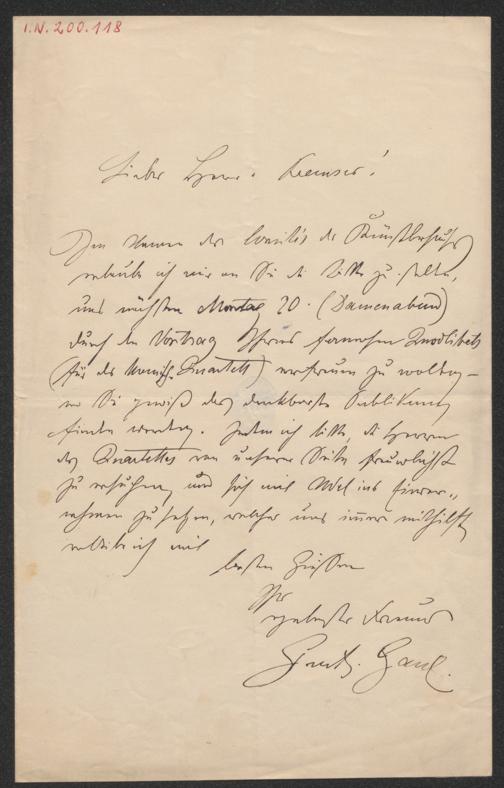 I.N. 200.118
Lieber Herr v. Kremser!
Im Namen des Comités der Künstlerhaus
erlaube ich mir an Sie die Bitte zu stellen,
uns nächsten Montag 20. (Damenabend)
durch den Vortrag Ihres famosen Quodlibets
(für das komische Quartett) erfreuen zu wollen –
wo Sie gewiß das dankbarste Publikum
finden werden. Indem ich bitte, die Herren
des Quartettes von unserer Seite freundlichst
zu ersuchen, und sich mit Udel ins Einver-
nehmen zu setzen, welcher uns immer mithilft,
verbleibe ich mit
besten Grüßen
Ihr
ergebenster Freund
Gust. Gaul.